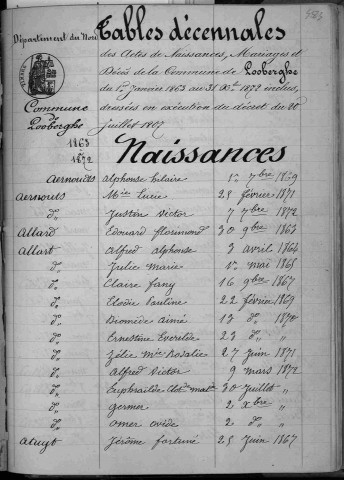 Département du Nord
Tables décennales
des Actes de Naissances, Mariages et
Décès de la Commune de Looberghe
du 1er Janvier 1863 au 31 Xbre 1872 inclus,
dressées en exécution du décret du 20
Juillet 1807
TIMBRE
Commune
de
Looberghe
1863
1872
Naissances
Aernouts Alphonse hilaire 1er 7bre 1869
Aernouts Mie Lucie 25 février 1871
do Justin Victor 7 7bre 1872
Allard Edouard florimond 30 9bre 1863
Allart Alfred alphonse 3 avril 1864
do Julie Marie 1er mai 1865
do Claire fany 16 9bre 1867
do Elodie Pauline 22 février 1869
do Diomède aimé 13 do 1870
do Ernestine Everilde 23 do „
do Zélie Mie Rosalie 27 Juin 1871
do Alfred Victor 9 mars 1872
do Euphraïde 30 Juillet „
do germer 2 Xbre „
do omer ovide 2 do „
Jérôme fortuné 25 Juin 1867